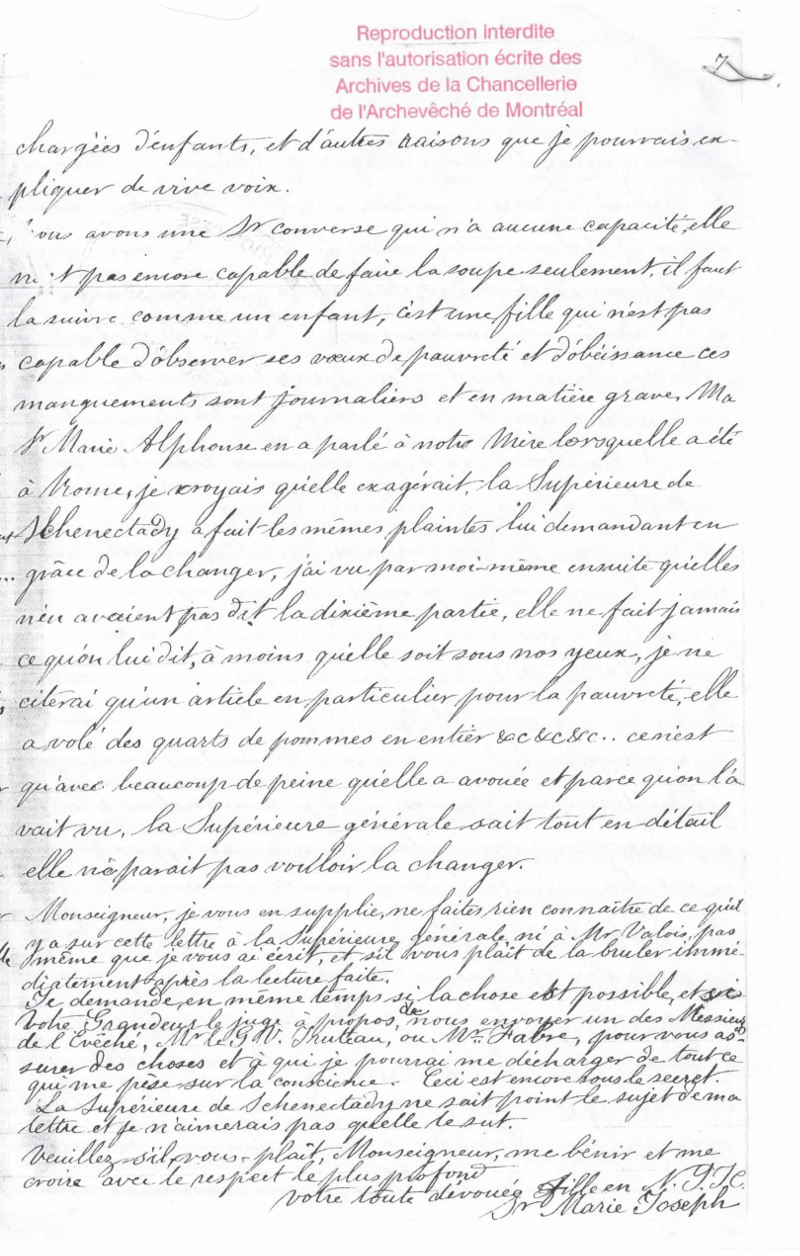 Reproduction interdite
sans l'autorisation écrite des
Archives de la Chancellerie
de l'Archevêché de Montréal
7
chargées d'enfants, et d'autres raisons que je pourrais ex-
pliquer de vive voix.
ous avons une Sr converse qui n'a aucune capacité, elle
n t pas encore capable de faire la soupe seulement, il faut
la suivre comme un enfant, c'est une fille qui n'est pas
capable d'observer ses vœux de pauvreté et d'obéissance ces
manquements sont journaliers et en matière grave. Ma
Sr Marie Alphonse en a parlé à notre Mère lorsqu'elle a été
à Rome, je croyais qu'elle exagérait, la Supérieure de
Schenectady a fait les mêmes plaintes lui demandant en
grâce de la changer, j'ai vu par moi-même ensuite qu'elles
n'en avaient pas dit la dixième partie, elle ne fait jamais
ce qu'on lui dit, à moins qu'elle soit sous nos yeux, je ne
citerai qu'un article en particulier pour la pauvreté, elle
a volé des quarts de pommes en entier &c&c&c.. ce n'est
qu'avec beaucoup de peine qu'elle a avouée et parce qu'on l'a
vait vu, la Supérieure générale sait tout en détail
elle ne parait pas vouloir la changer.
Monseigneur, je vous en supplie, ne faites rien connaitre de ce qu'il
y a sur cette lettre à la Supérieure générale ni à Mr Valois, pas
même que je vous ai écrit, et s'il vous plaît de la bruler immé-
diatement après la lecture faite.
Je demande, en même temps si la chose est possible, et si
Votre Grandeur le juge à propos, de nous envoyer un des Messieurs
de l'Evêché, Mr le G. V. Truteau, ou Mr. Fabre, pour vous as-
surer des choses et à qui je pourrai me décharger de tout ce
qui me pèse sur la conscience. Ceci est encore sous le secret.
La Supérieure de Schenectady ne sait point le sujet de ma
lettre et je n'aimerais pas qu'elle le sut.
Veuillez s'il vous plaît, Monseigneur, me bénir et me
croire avec le respect le plus profond
votre toute dévouée fille en N. S. J. C.
Sr Marie Joseph